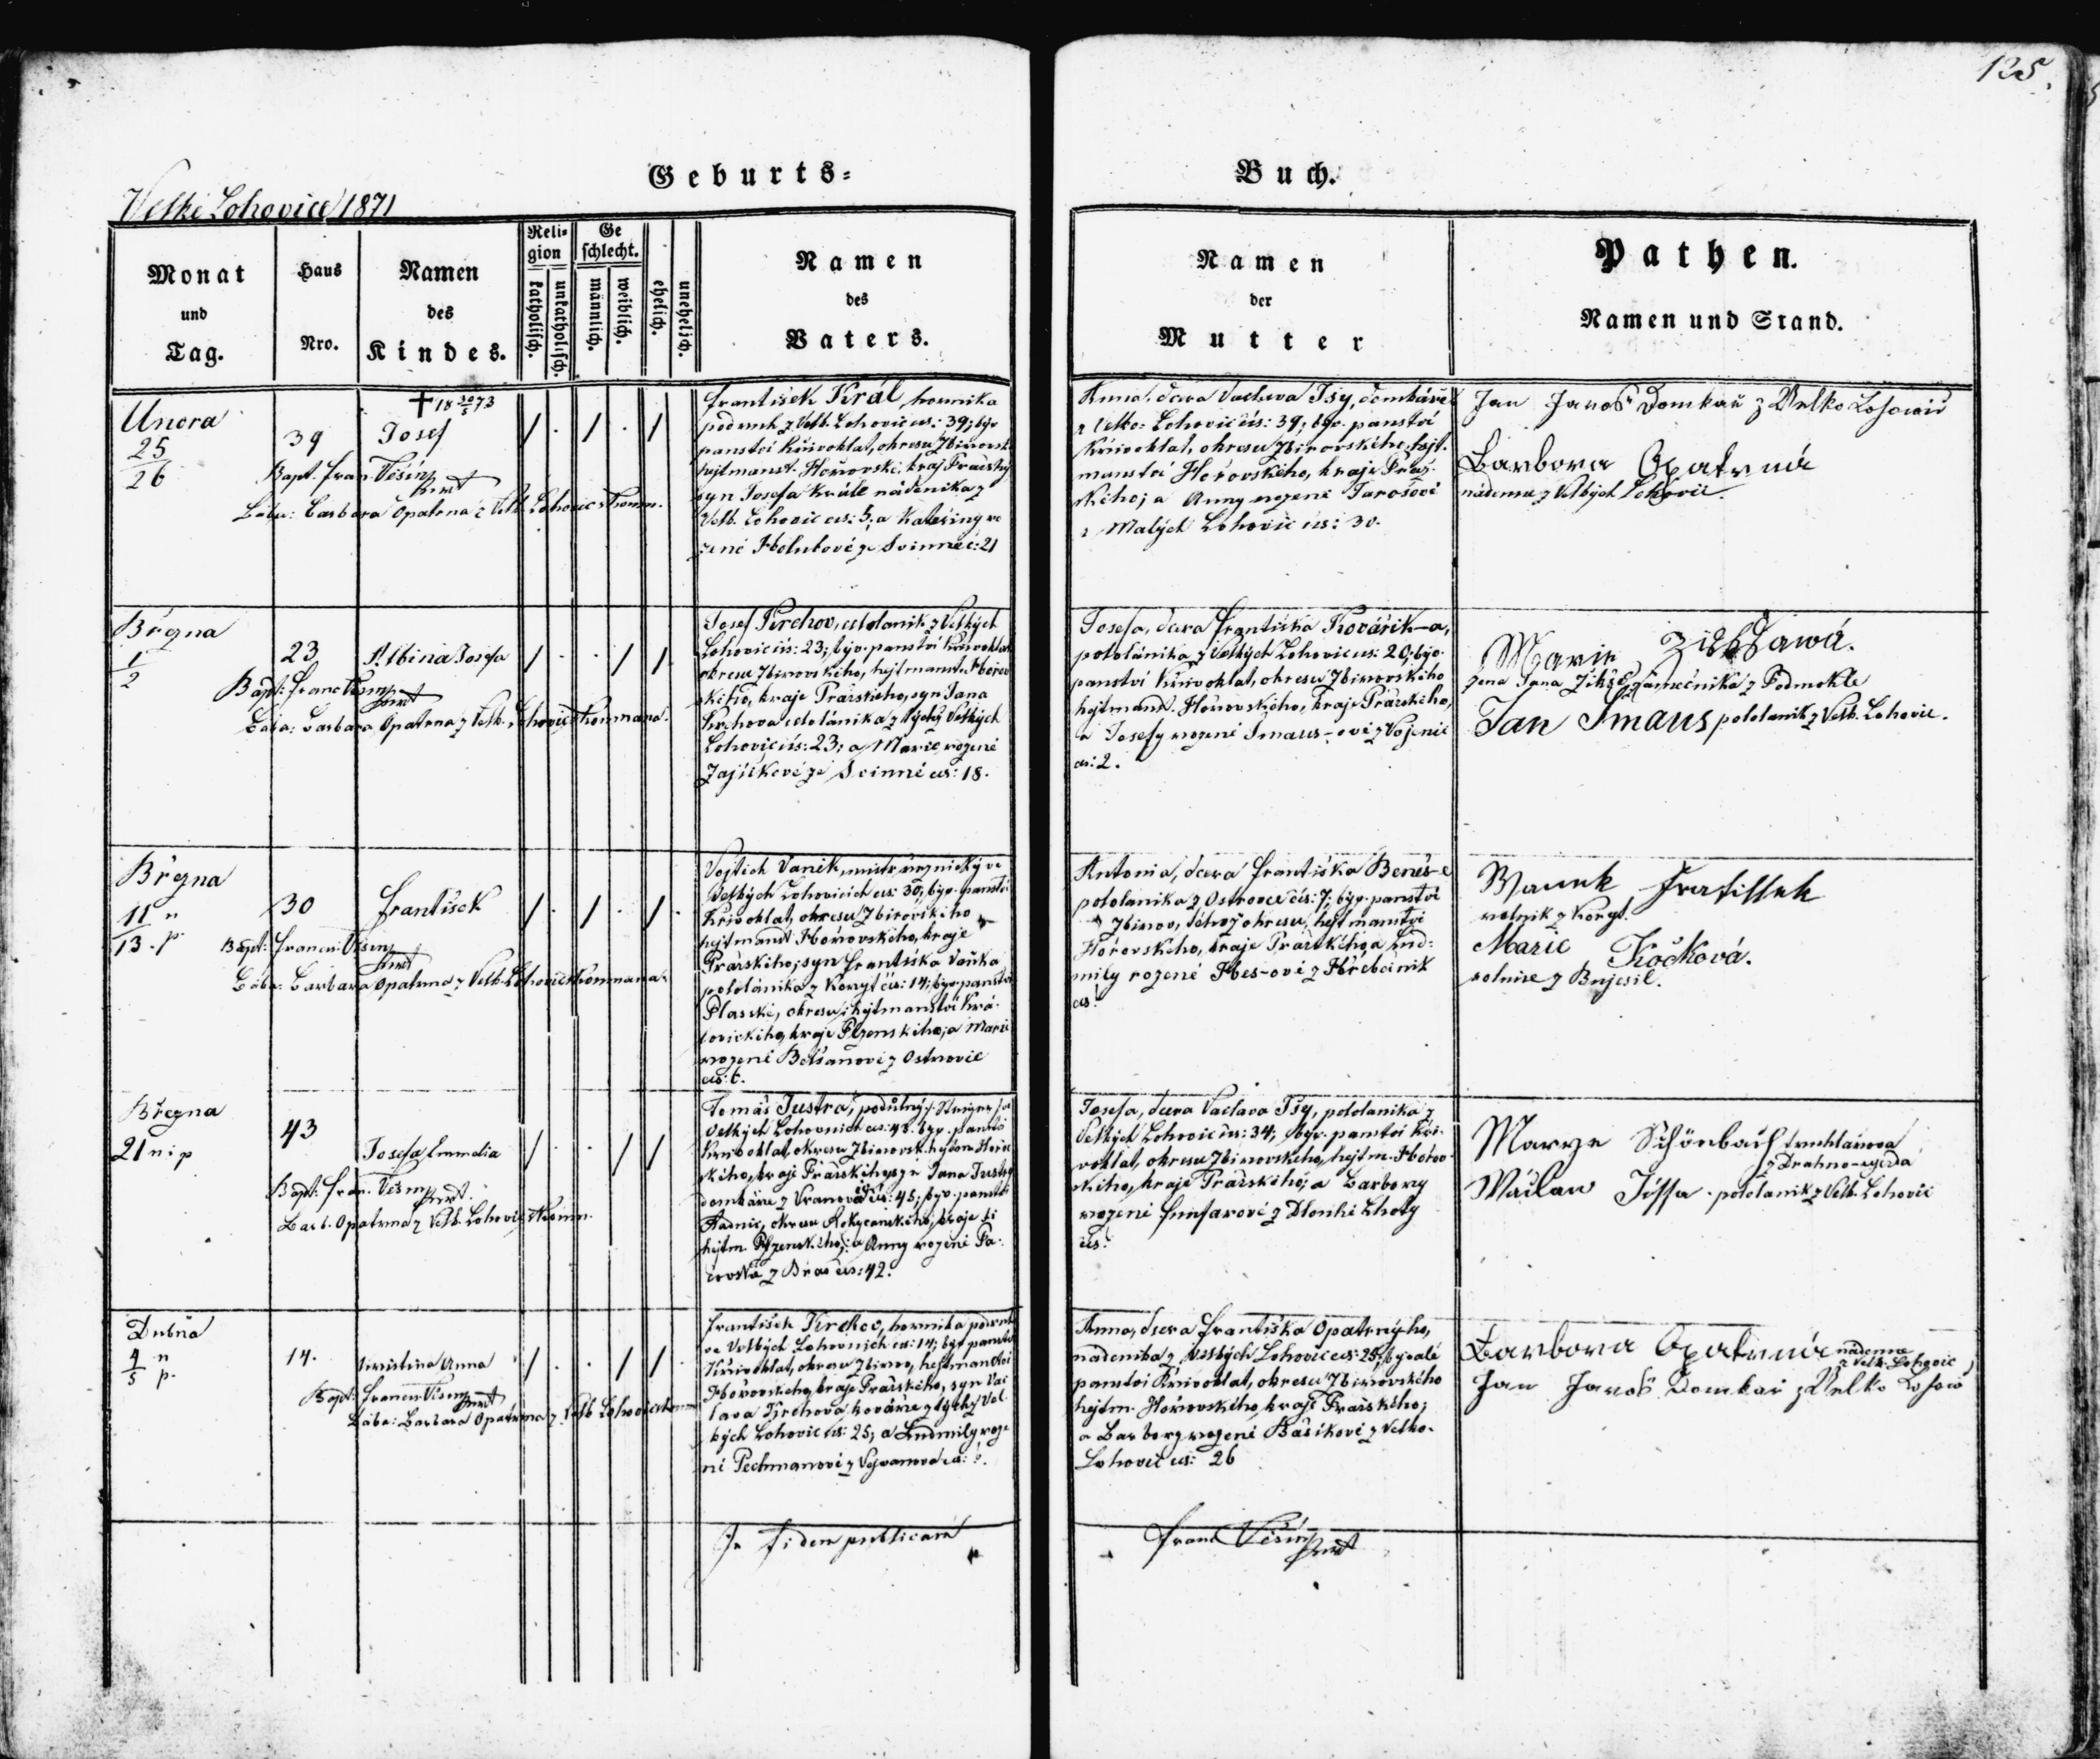 125.
Geburts=
Buch.
Velké Lohovice 1871
Monat
und
Tag.
Haus
Nro.
Namen
des
Kindes.
Reli=
gion
katholisch.
unkatholisch.
Ge
schlecht.
männlich.
weiblich.
ehelich.
unehelich.
Namen
des
Vaters.
Namen
der
Mutter
Pathen.
Namen und Stand.
Unora
25
26
39
† 18 30/5 73
Josef
Bapt. Fran. Věšín
Bába: Barbora Opatrná z Velk. Lohovic
František Král, horníka
z Velk. Lohovic čís: 39; býv
panství Křivoklat, okresu Zbirovsk.
hejtmanst. Hořovské, kraj Pražský
syn Josefa Krále nádeníka z
Velk. Lohovic čís: 5, a Kateřiny ro
zené Holubové ze Svinné č: 21
Anna, dcera Václava Tsy, domkáře
z Velko: Lohovic čís: 39; býv. panství
Křivoklat, okresu Zbirovského, hejt.
manství Hořovského, kraje Praž-
ského; a Anny rozené Jarošové
z Malých Lohovic čís: 30.
Jan Jaroš Domkař z Velko Lohowic
Barbora Opatrná
z Velkých Lohovic.
Března
1
2
23
Albina Josefa
Bapt: Franc Věšín
Bába: Barbara Opatrna z Velk. Lohovic
Josef Krchov, celolaník z Velkých
Lohovic čís: 23; býv. panství Křivoklat
okresu Zbirovského, hejtmanst. Hořov
ského, kraje Pražského, syn Jana
Krchova celolánika z týchž Velkých
Lohovic čís: 23; a Marie rozené
Zajíčkové ze Svinné čís: 18.
Josefa, dcera Františka Kovářík-a,
pololánika z Velkých Lohovic čís: 20; býv.
panství Křivoklat, okresu Zbirovského
hejtmanst. Hořovského, kraje Pražského,
a Josefy rozené Šmaus-ové z Vojenic
čís: 2.
Marie
žena Jana z Podmokle
Jan Smaus pololaník z Velk. Lohovic.
Března
11 n
13. p.
30
František
Bapt: Francis. Věšín
Bába: Barbara Opatrna z Velk. Lohovic
Vojtěch Vaněk, ve
Velkých Lohovicích čís: 30; býv. panství
Křivoklat, okresu Zbirovského
hejtmanst. Hořovského, kraje
Pražského; syn Františka Vaňka
pololánika z Koryt čís: 14; býv. panství
Plasské, okresu i hejtmanství Krá-
lovického, kraje Plzenského; a Marie
rozené Betšanové z Ostrovic
čís: 6.
Antonia, dcera Františka Beneš-e
pololanika z Ostrovce čís: 7; býv. panství
Zbirov, téhož okresu, hejtmanství
Hořovského, kraje Pražského, a Lud=
mily rozené Hes-ové z Hřebečnik
čís:
Wanek Fratissek
rolnik z Koryt.
Marie Kočková.
rolnice z Bujesil.
Března
21 n i p
43
Josefa Emmelia
Bapt: Fran. Věšín
Barb. Opatrna z Velk. Lohovic
Tomáš Justra, podůlný Steiger
Velkých Lohovicích čís: 43. býv. panství
Křivoklat, okresu Zbirovsk. hejtm. Hořov
ského, kraje Pražského; syn Jana Justry
domkáře z Vranovic čís: 45; býv. panství
Radnic, okresu Rokycanského, kraje i
hejtm. Plzenského; a Anny rozené Pa-
z Bras čís: 42.
Josefa, dcera Vaclava Tsy, pololanika z
Velkých Lohovic čís: 34; býv. panství Kři-
voklat, okresu Zbirovského, hejtm. Hořov
ského, kraje Pražského; a Barbory
rozené z Dlouhé Lhoty
čís:
Marye Schönbach truhlářova
z Drahno-ujezda
Wáclaw Jissa. pololanik z Velk. Lohovic
Dubna
4 n
5 p.
14.
Kristina Anna
Bapt: Francis. Věšín
Bába: Barbara Opatrna z Velk Lohovic
František Krchov, horníka
ve Velkých Lohovicích čís: 14; být panství
Křivoklat, okresu Zbirov, hejtmanství
Hořovského, kraje Pražského, syn Vác
lava Krchova kováře z týchž Vel
kých Lohovic čís: 25; a Ludmily roze
né Pechmanové z Vejvanova čís: ?.
Anna, dcera Františka Opatrnýho,
nadenika z Velkých Lohovic čís: 25; byvalé
panství Křivoklat, okresu Zbirovského
hejtm. Hořovského, kraje Pražského;
a Barbory rozené Bášíkové z Velko-
Lohovic čís: 26
Barbora Opatrná nádenice
z Velk. Lohovic
Jan Jaroš Domkař z Velko Lohowic
In fidem publicam
Franc Věšín